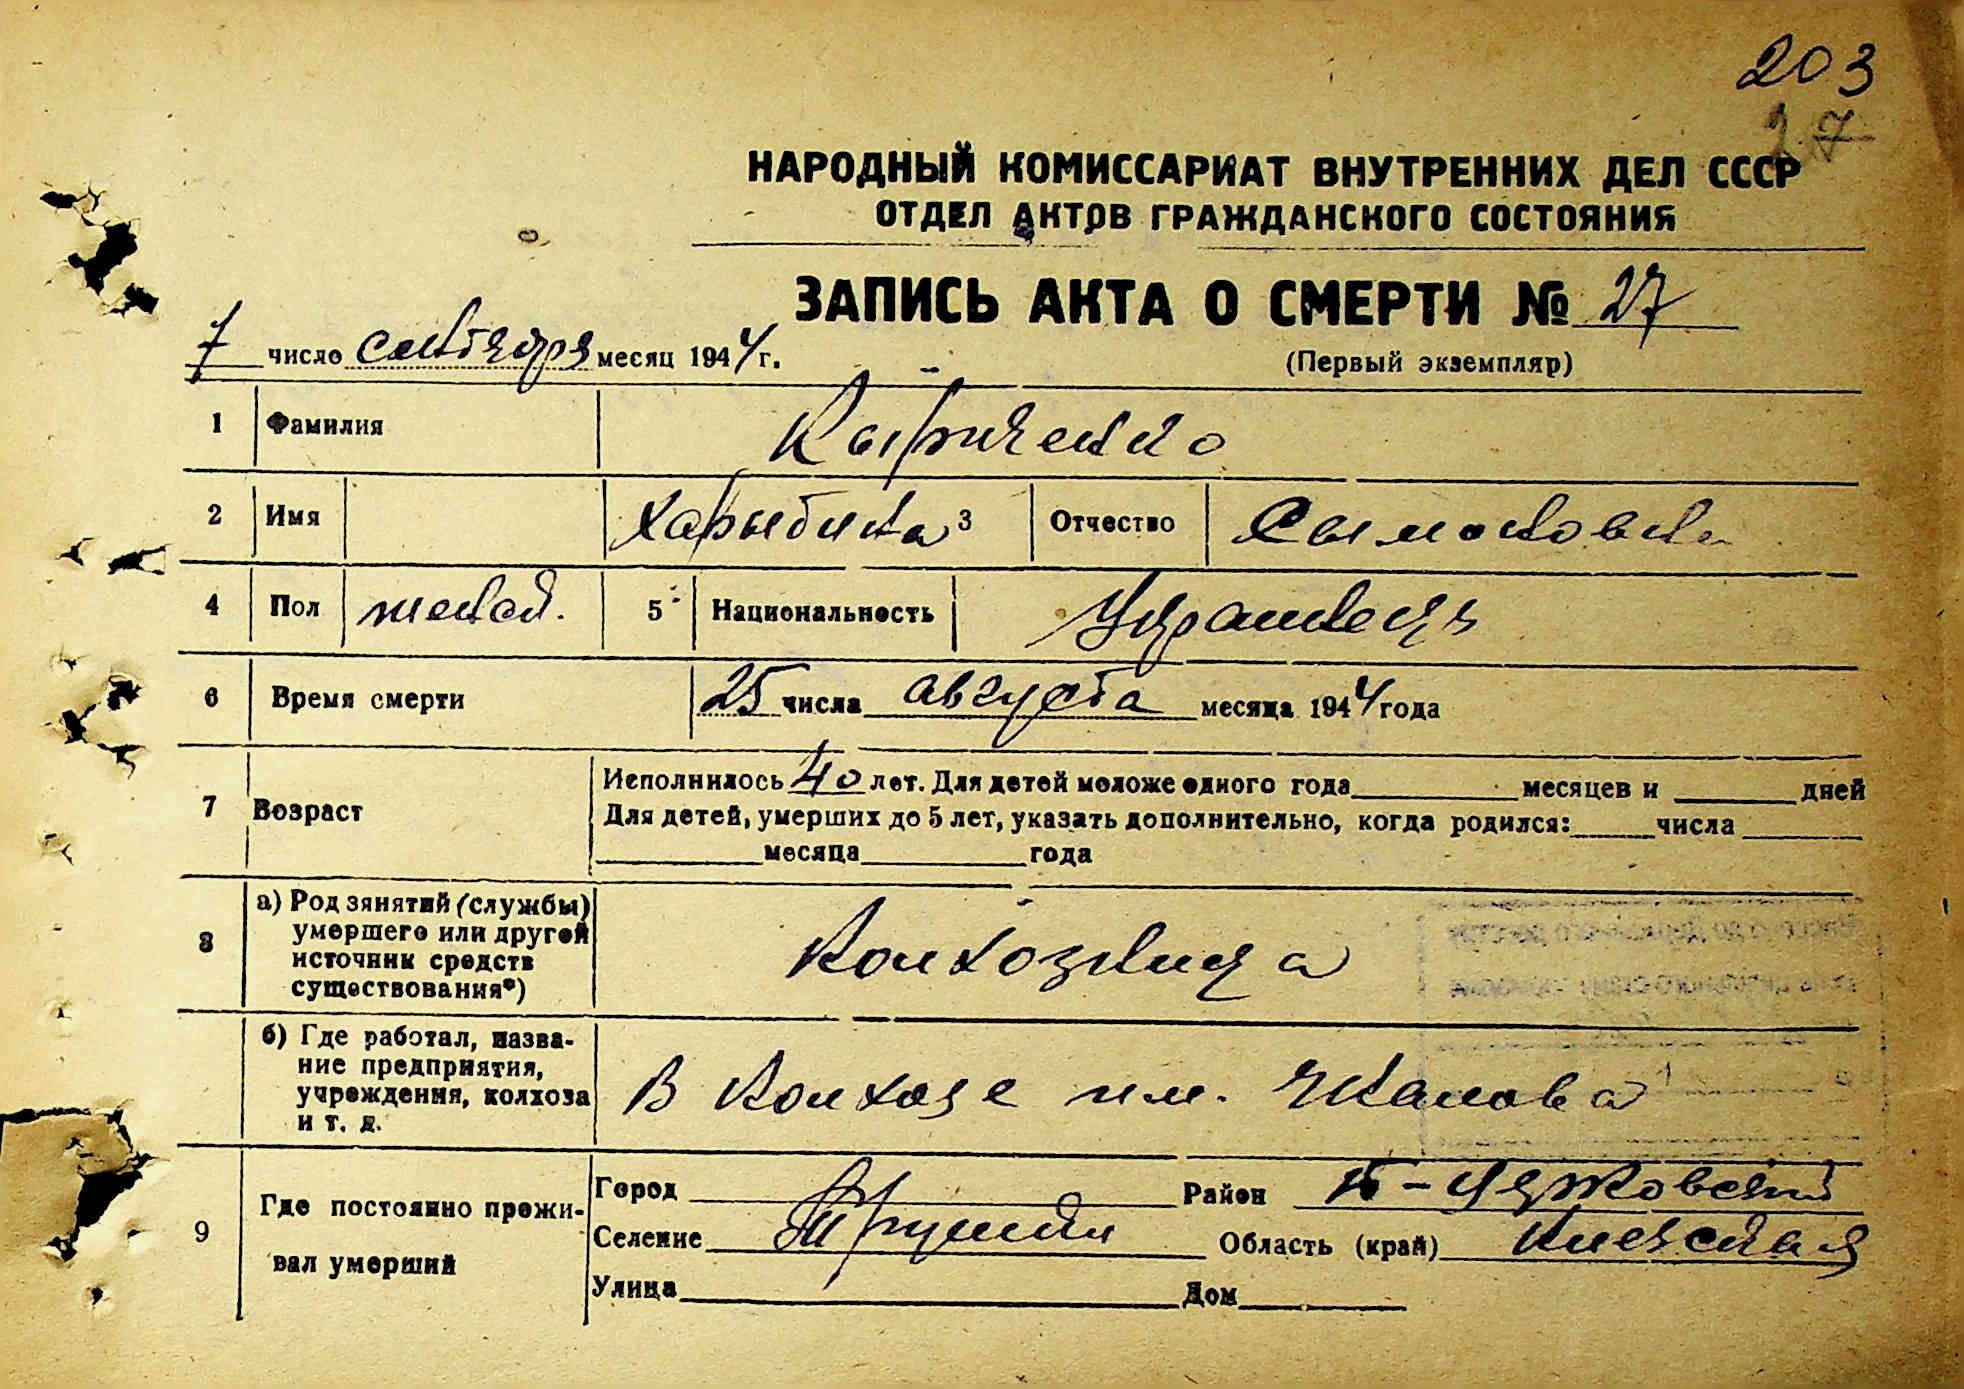 203
27
НАРОДНЫЙ КОМИССАРИАТ ВНУТРЕННИХ ДЕЛ СССР
ОТДЕЛ АКТОВ ГРАЖДАНСКОГО СОСТОЯНИЯ
ЗАПИСЬ АКТА О СМЕРТИ № 27
7 число сентября месяц 1944 г.
(Первый экземпляр)
1 Фамилия Кыриченко
2 Имя Харытина 3 Отчество Сымоновна
4 Пол женск. 5 Национальность Украинець
6 Время смерти 25 числа августа месяца 1944 года
7 Возраст Исполнилось 40 лет. Для детей моложе одного года месяцев и дней
Для детей, умерших до 5 лет, указать дополнительно, когда родился: числа
месяца года
8 а) Род занятий (службы) умершего или другой источник средств существования*) Колхозница
б) Где работал, название предприятия, учреждения, колхоза и т. д. В колхозе им. Чкалова
9 Где постоянно проживал умерший
Город Район Б-Церковский
Селение Трушки Область (край) Киевская
Улица Дом